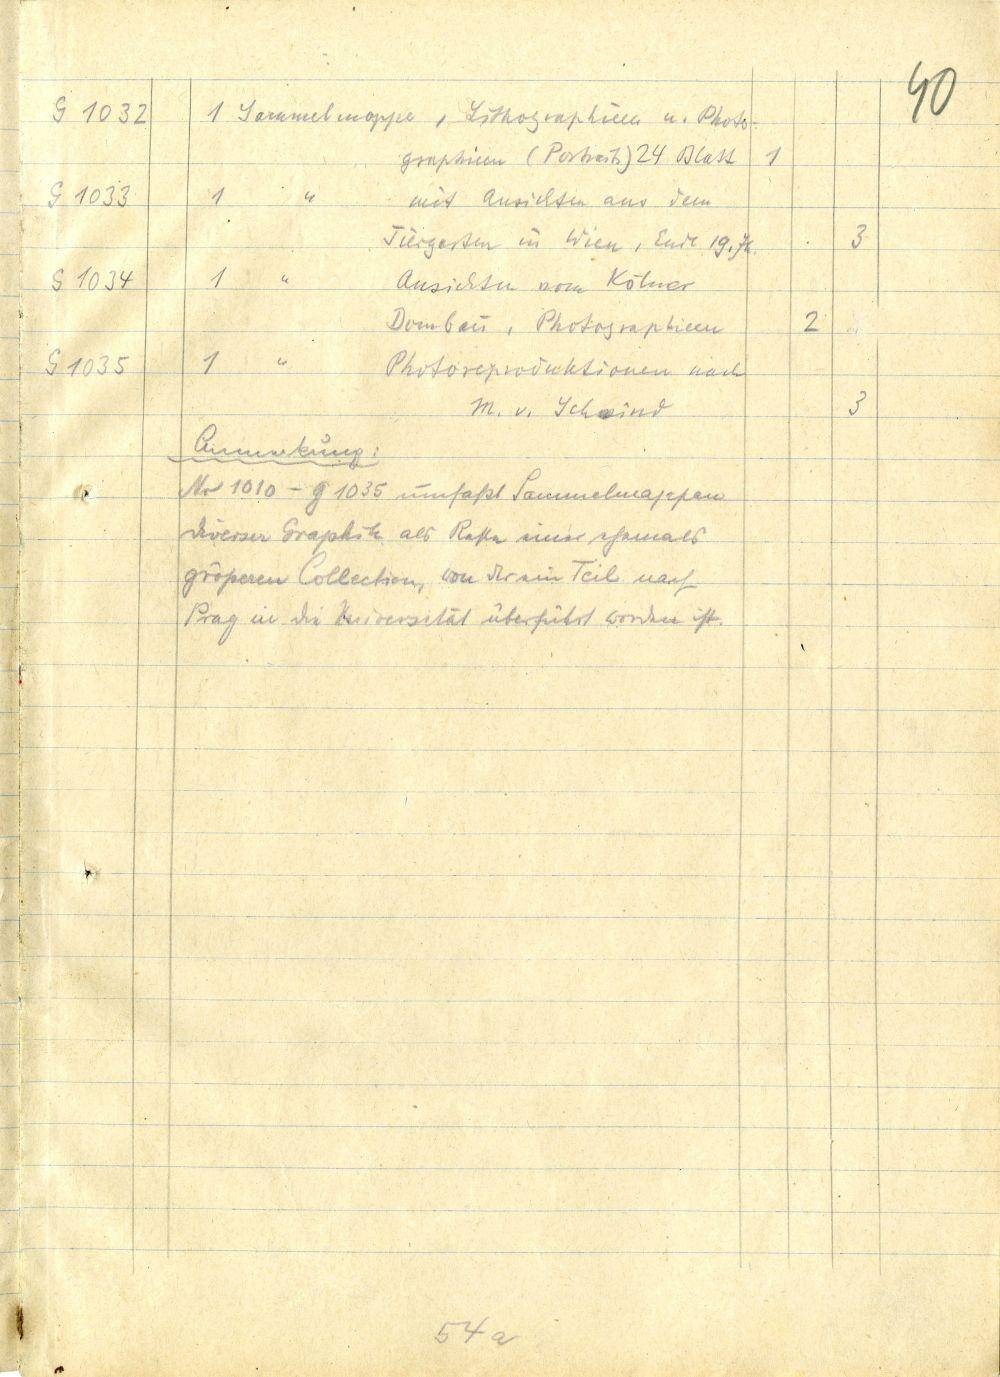 40
G 1032 1 Sammelmappe, Lithographieen u. Photo-
graphieen (Portraits) 24 Blatt 1
G 1033 1 " mit Ansichten aus dem
Tiergarten in Wien, Ende 19. Jh. 3
G 1034 1 " Ansichten vom Kölner
Dombau, Photographieen 2
G 1035 1 " Photoreproduktionen nach
M. v. Schwind 3
Anmerkung:
No 1010 - G 1035 umfaßt Sammelmappen
diverser Graphik als Reste einer ehemals
größeren Collection, von der ein Teil nach
Prag in die Universität überführt worden ist.
54a